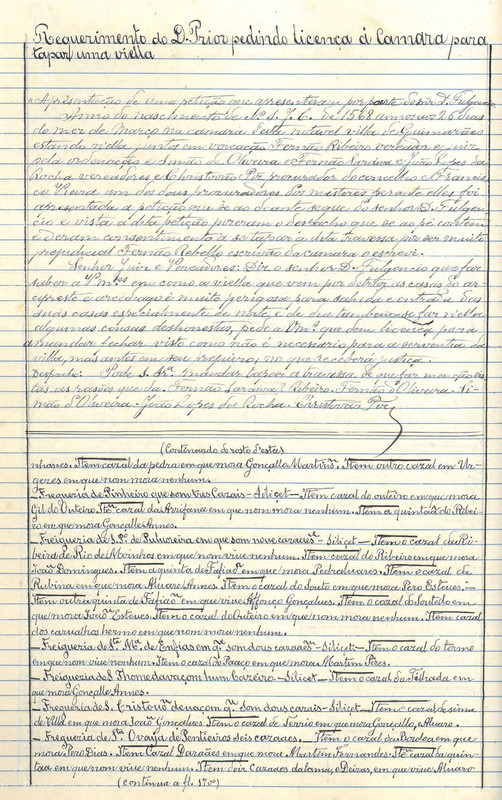 Requerimento do D. Prior pedindo licença á Camara para
tapar uma viella
Apresentação de uma petição que apresentaram por parte do snr D. Fulgencio
Anno do nascimento de N.º S. J. C. de 1568 annos aos 26 dias
do mez de Março na camara d'esta notavel villa de Guimarães
estando n'ella juntos em vereação Fernão Ribeiro vereador e juiz
pela ordenação e Simão de Oliveira e Fernão e João Lopes da
Rocha vereadores e Christovão Piz procurador do concelho e Francis
co Vieira um dos dous procuradores dos mesteres perante elles foi
apresentada a petição que é ao deante segue do senhor D. Fulgen
cio e vista a dita petição pozeram o despacho que se ao pé contem
e deram consentimento a se tapar a dita travessa por ser muito
prejudicial Fernão Rebello escrivão da camara o escrevi.
Senhor Juiz e Vereadores: Diz o senhor D. Fulgencio que faz
saber a Vmces em como a viella que vem por detraz as casas do ar
cypreste e arcediago é muito perigosa para sahida e entrada das
suas casas especialmente de noite e de dia tambem se faz n'ella
algumas cousas deshonestas, pede a Vmces que dem licença para
a mandar fechar visto como não é necessario para a serventia da
villa, mas antes em seu prejuizo, no que receberá justiça.
Despacho: Pode S. Sria mandar tapar a travessa de que faz menção vis
tas as razões que dá. Fernão Ribeiro. Fernão d'Oliveira. Si
mão d'Oliveira. João Lopes da Rocha. Christovão Piz
(Continuado do rosto d'esta)
nhanes. Item cazal da pedra em que mora Gonçallo Martins. Item outro cazal em Ur-
gezes em que nom mora nenhum.
Freguezia de Pinheiro que som tres Cazais - Siliçet - Item cazal do outeiro em que mora
Gil do Outeiro. Ite cazal da Arrifana em que nom mora nenhum. Item a quintaã do Ribei
ro em que mora Gonçalle Annes.
- Freigueria de S. Pº de Polvoreira em que som nove cazaaes - Siliçet - Item o cazal da Ri-
beira do Rio de Moinhos em que nom vive nenhum. Item cazal do Ribeiro em que mora
Joam Domingues. Item a quinta de Fafiaõ em que mora Pedralvares. Item o cazal de
Rubina em que mora Alvare Annes. Item o cazal do Souto em que mora Pero Esteves. -
Item outra quinta de Fafiaõ em que vive Affonço Gonçalves. Item o cazal do Soutello em
que mora João Esteves. Item o cazal do Outeiro em que nom mora nenhum. Item cazal
dos carvalhos hermo em que nom mora nenhum.
- Freigueria de Sta Mª de Enfias em que som dous cazaaes - Siliçet - Item o cazal do termo
em que nom vive nenhum. Item o cazal do Paaço em que mora Martim Pires.
- Freigueria de S. Thome d'avaçam hum Cazeiro - Siliçet - Item o cazal da Telhada em
que mora Gonçalle Annes.
- Freigueria de S. Cristovõ de vaçom que som dous cazais - Siliçet - Item o cazal de sima
de Villa em que mora João Gonçalves Item o cazal de Terrio em que mora Gonçallo, Alvaro.
- Freigueria de Sta Ovaia de Penteiros seis cazaaes. - Item o cazal da Boudea em que
mora Pero Dias. Item Cazal Daraães em que mora Martim Fernandes. Ite cazal da quin-
taã em que nom vive nenhum. Item dois cazaaes em que vive Alvaro
(continua a fl. 17vº)